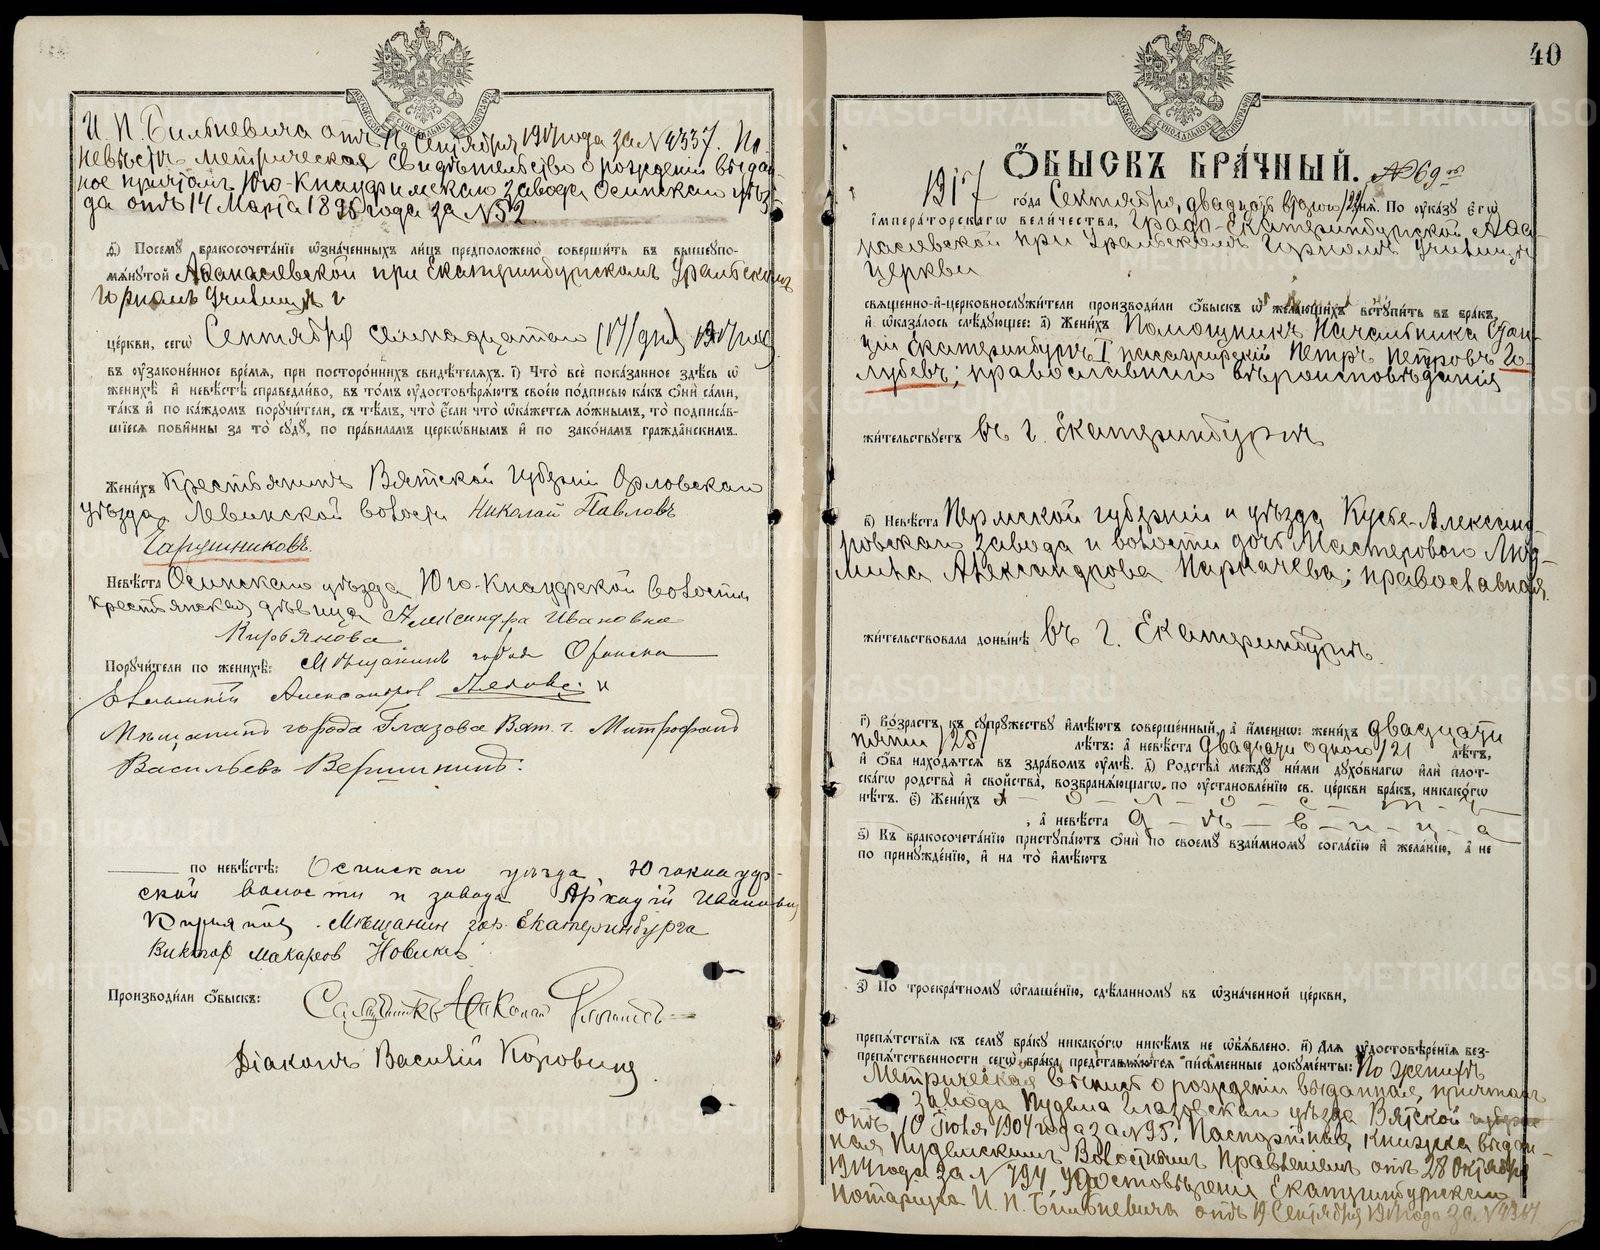 И. П. Бильневича отъ сентября 1917 года за № 4337. По
невѣстѣ метрическое свидѣтельство о рожденіи выдан-
ное причтомъ Юго-Кнауфимскаго завода Осинскаго уѣз-
да отъ 14 Марта 1896 года за № 52.
д҃) Посему бракосочетаніе ѡзначенныхъ лицъ предположено совершить въ вышеупо-
мянутой Аѳанасіевской при Екатеринбургскомъ Уральскомъ
Горномъ Училищѣ
церкви, сегѡ Сентября семнадцатаго (17) дня 1917 года
въ оузаконенное время, при постороннихъ свидѣтеляхъ. і҃) Что всё показанное здѣсь ѡ
женихѣ и невѣстѣ справедливо, въ томъ оудостовѣряютъ своею подписью какъ они сами,
такъ и по каждомъ поручители, съ тѣмъ, что если что ѡкажется ложнымъ, то подписав-
шіеся повинны за то суду, по правиламъ церковнымъ и по законамъ гражданскимъ.
Женихъ Крестьянинъ Вятской губерніи Орловскаго
уѣзда Левинской волости Николай Павловъ
Гарушниковъ.
Невѣста Осинскаго уѣзда Юго-Кнауфской волости
крестьянская дѣвица Александра Ивановна
Кирьянова
Поручители по женихѣ: Мѣщанинъ города Оханска
Александров и
Мѣщанинъ города Глазова Вят. г. Митрофанъ
Васильевъ Вершининъ.
по невѣстѣ: Осинскаго уѣзда, Югокнауф-
ской волости и завода Аркадій Иванович
Мѣщанин гор. Екатеринбурга
Виктор Макаров Новиков
Производили ѡбыскъ: Священникъ Николай
Діаконъ Василій Коровинъ
40
ѠБЫСКЪ БРАЧНЫЙ. № 69
1917 года Сентября, двадцать дня. По указу Егѡ
Императорскагѡ величества, Градо-Екатеринбургской Аѳа-
насіевской при Уральскомъ Горномъ Училищѣ
церкви
священно-и-церковнослужители производили ѡбыскъ ѡ желающихъ вступить въ бракъ,
и ѡказалось слѣдующее: а҃) Женихъ Помощникъ Начальника Стан-
ціи Екатеринбургъ I пассажирскій Петръ Петровъ Го-
лубевъ; православнаго вѣроисповѣданія
жительствуетъ въ г. Екатеринбургѣ
в҃) Невѣста Пермской губерніи и уѣзда Кусье-Александ-
ровскаго завода и волости дочь Мастерового Люд-
мила Александрова Паркачева; православная
жительствовала донынѣ въ г. Екатеринбургѣ.
г҃) Возрастъ къ супружеству имѣютъ совершенный, а именно: женихъ двадцати
пяти /25/ лѣтъ: а невѣста двадцати одного /21 лѣтъ,
и ѡба находятся въ здравомъ оумѣ. д҃) Родства между ними духовнагѡ или плот-
скагѡ родства и свойства, возбраняющагѡ по оустановленію св. церкви бракъ, никакогѡ
нѣтъ. е҃) Женихъ х – о – л – о – с – т – ъ
, а невѣста д – ѣ – в – и – ц – а
ѕ҃) Къ бракосочетанію приступаютъ они по своему взаимному согласію и желанію, а не
по принужденію, и на то имѣютъ
з҃) По троекратному ѡглашенію, сдѣланному въ ѡзначенной церкви,
препятствія къ сему браку никакогѡ никѣмъ не ѡбъявлено. и҃) Для оудостовѣренія без-
препятственности сегѡ брака представляются письменные документы: По женихѣ
Метрическая выпись о рожденіи выданная, причтомъ
завода Пудема Глазовскаго уѣзда Вятской губерніи
отъ 10 Іюля 1904 года за № 95. Паспортная книжка выдан-
ная Пудемскимъ Волостнымъ Правленіемъ отъ 28 Октября
1914 года за № 794, Удостовѣреніе Екатеринбургскаго
Нотаріуса И. П. Бильневича отъ 19 Сентября 1917 года за №